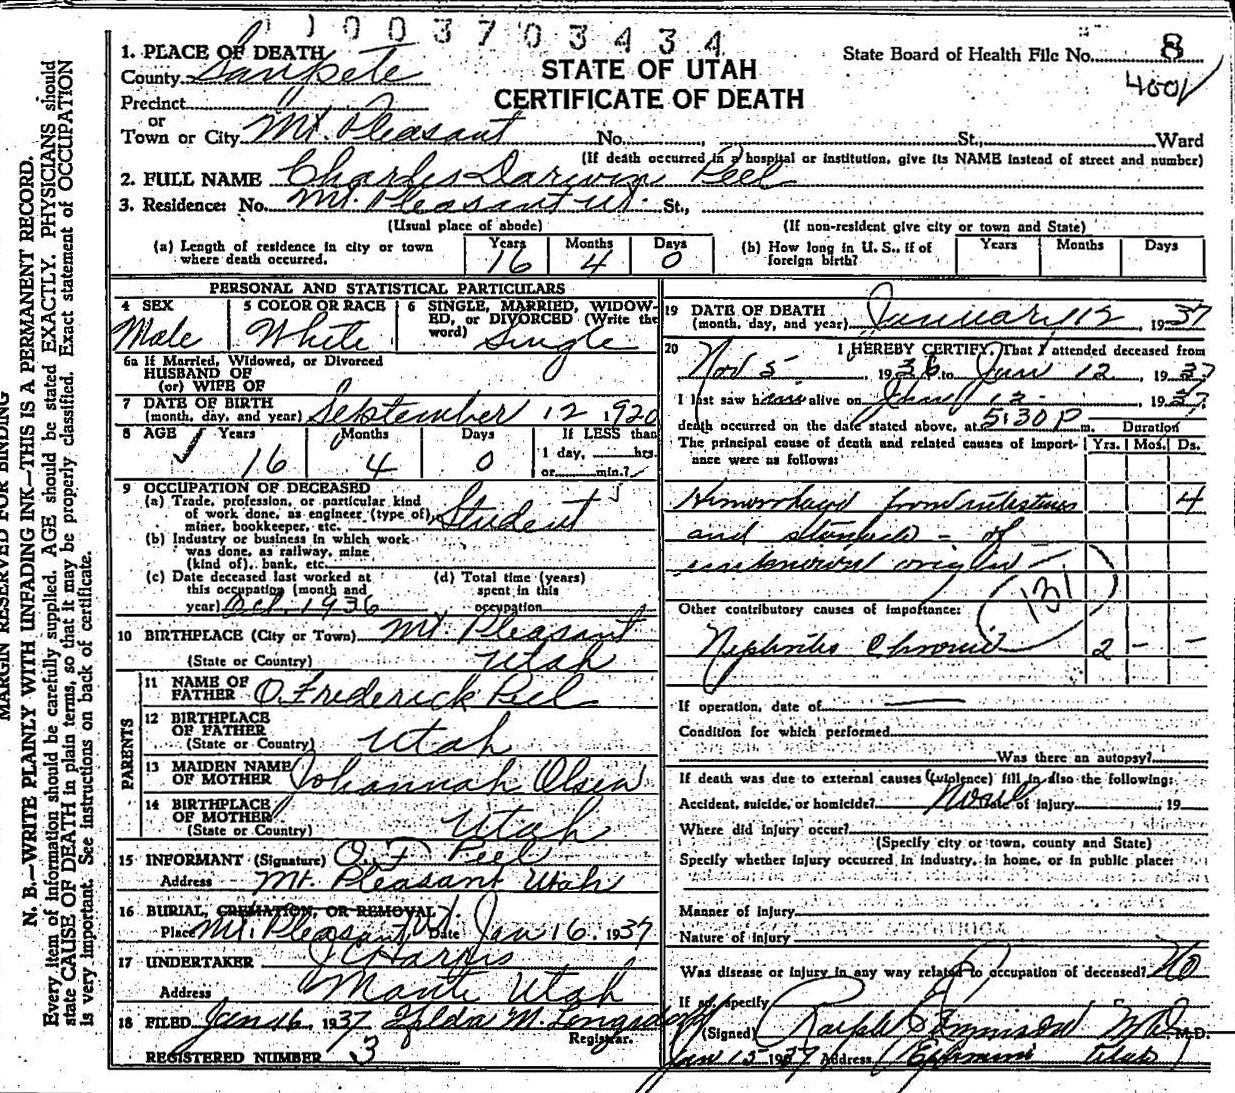 1003703434
1. PLACE OF DEATH
County Sanpete
STATE OF UTAH
CERTIFICATE OF DEATH
State Board of Health File No. 8
4001
Precinct
or
Town or City Mt. Pleasant No. , St., Ward
(If death occurred in a hospital or institution, give its NAME instead of street and number)
2. FULL NAME Charles Darwin Peel
3. Residence: No. Mt. Pleasant Ut. St.,
(Usual place of abode) (If non-resident give city or town and State)
(a) Length of residence in city or town where death occurred. Years 16 Months 4 Days 0
(b) How long in U. S., if of foreign birth? Years Months Days
PERSONAL AND STATISTICAL PARTICULARS
4 SEX Male
5 COLOR OR RACE White
6 SINGLE, MARRIED, WIDOWED, or DIVORCED (Write the word) Single
6a If Married, Widowed, or Divorced
HUSBAND OF
(or) WIFE OF
7 DATE OF BIRTH
(month, day, and year) September 12 1920
8 AGE Years 16 Months 4 Days 0 If LESS than 1 day, hrs. or min.?
9 OCCUPATION OF DECEASED
(a) Trade, profession, or particular kind
of work done, as engineer (type of),
miner, bookkeeper, etc. Student
(b) Industry or business in which work
was done, as railway, mine
(kind of), bank, etc.
(c) Date deceased last worked at
this occupation (month and
year) Oct. 1936
(d) Total time (years)
spent in this
occupation
10 BIRTHPLACE (City or Town) Mt. Pleasant
(State or Country) Utah
PARENTS
11 NAME OF
FATHER O. Frederick Peel
12 BIRTHPLACE
OF FATHER
(State or Country) Utah
13 MAIDEN NAME
OF MOTHER Johannah Olsen
14 BIRTHPLACE
OF MOTHER
(State or Country) Utah
15 INFORMANT (Signature) O. F. Peel
Address Mt. Pleasant Utah
16 BURIAL, CREMATION, OR REMOVAL
Place Mt. Pleasant Ut. Date Jan 16, 1937
17 UNDERTAKER
Address Manti Utah
18 FILED Jan 16 1937 M.
Registrar.
REGISTERED NUMBER 3
19 DATE OF DEATH
(month, day, and year) January 12, 1937
20 I HEREBY CERTIFY, That I attended deceased from
Nov 5, 1936 to Jan 12, 1937
I last saw him alive on Jan 12, 1937
death occurred on the date stated above, at 5:30 P m. Duration
The principal cause of death and related causes of importance were as follows: Yrs. Mos. Ds.
Hemorrhage from intestines 4
and stomach - of
unknown origin -
131
Other contributory causes of importance:
Nephritis Chronic 2 - -
If operation, date of —
Condition for which performed
Was there an autopsy?
If death was due to external causes (violence) fill in also the following:
Accident, suicide, or homicide? None Date of injury , 19
Where did injury occur?
(Specify city or town, county and State)
Specify whether injury occurred in industry, in home, or in public place:
Manner of injury
Nature of injury
Was disease or injury in any way related to occupation of deceased? No
If so, specify
(Signed) Ralph M.D.
Jan 15 1937 Address Ephraim Utah
MARGIN RESERVED FOR BINDING
N. B.—WRITE PLAINLY WITH UNFADING INK—THIS IS A PERMANENT RECORD.
Every item of information should be carefully supplied. AGE should be stated EXACTLY. PHYSICIANS should
state CAUSE OF DEATH in plain terms, so that it may be properly classified. Exact statement of OCCUPATION
is very important. See instructions on back of certificate.